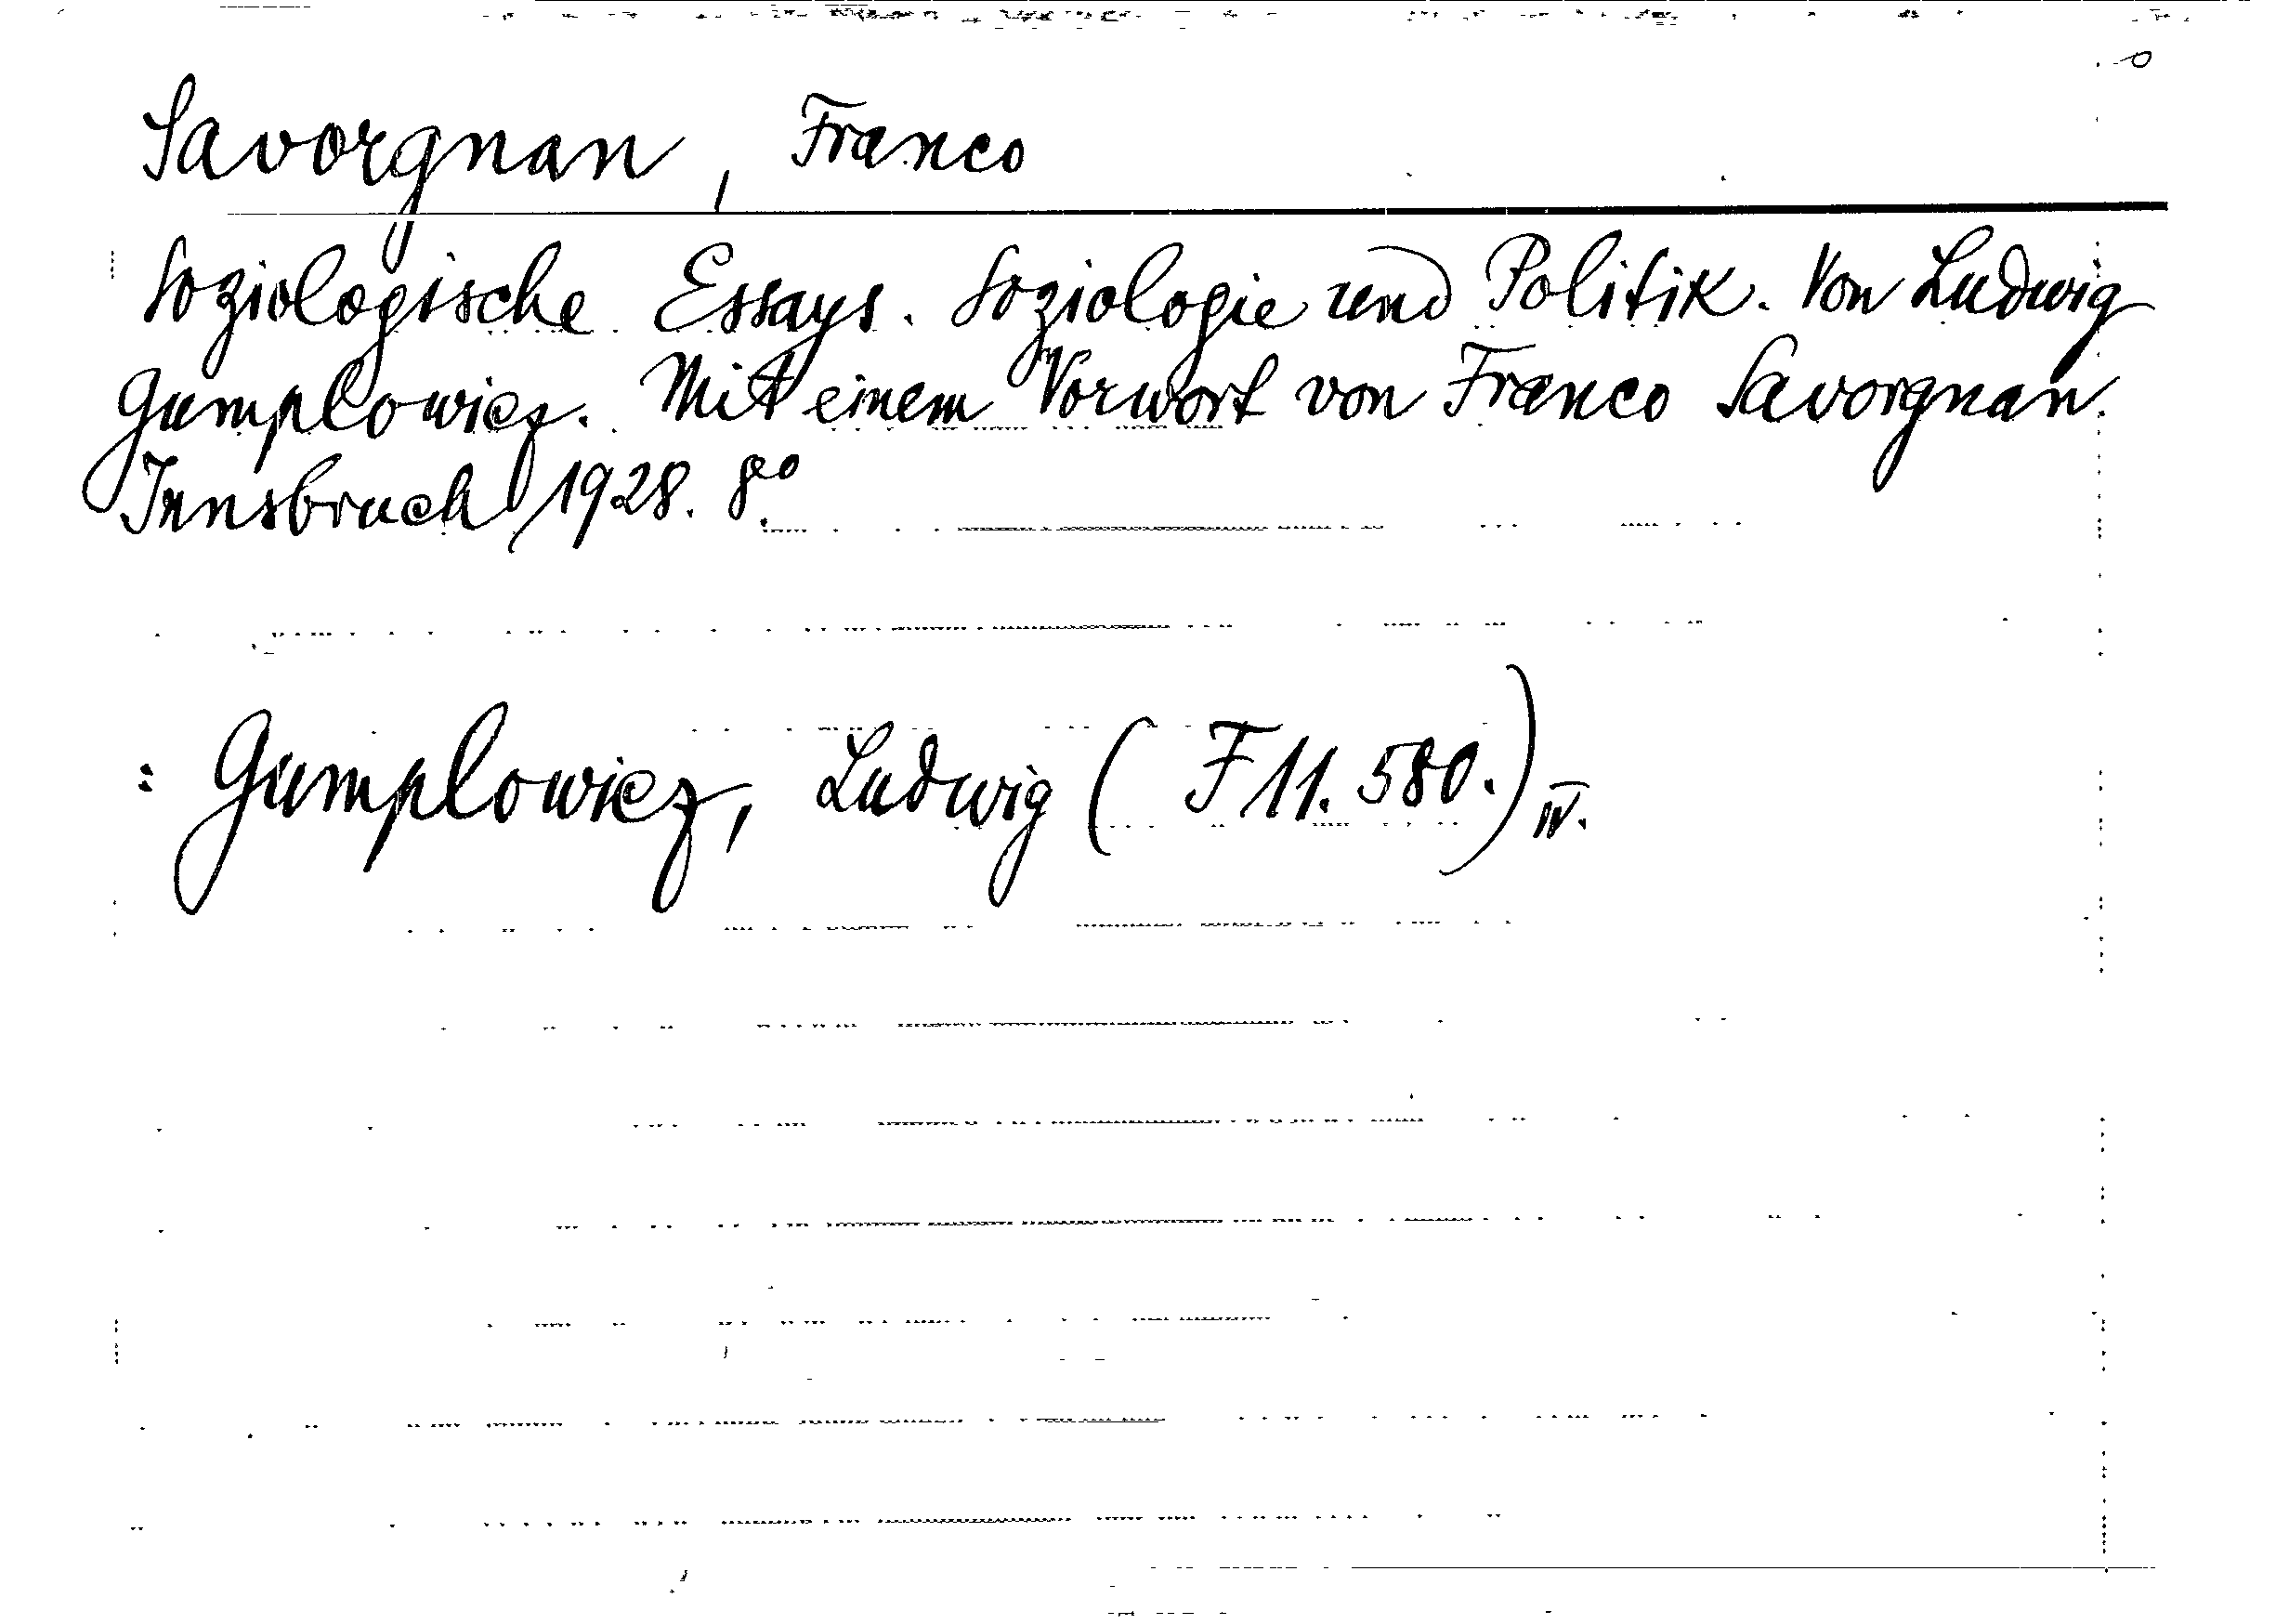 Savorgnan, Franco
Soziologische Essays. Soziologie und Politik. Von Ludwig
Gumplowicz. Mit einem Vorwort von Franco Savorgnan.
Innsbruck 1928. 8º.
: Gumplowicz, Ludwig (F 11.580.) IV.